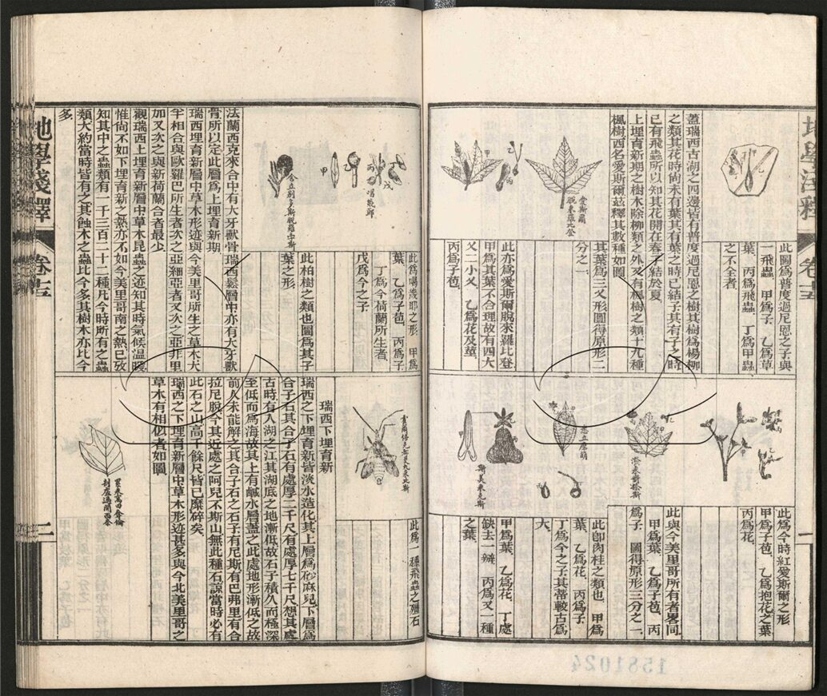 此圖爲普度過尼恩之子與
一飛蟲 甲爲子 乙爲草
葉 丙爲飛蟲 丁爲甲蟲
之不全者
蓋瑞西古湖之四邊皆有普度過尼恩之樹其樹爲楊柳
之類其花時尚未有葉其有葉之時已結子其有子之時
已有飛蟲所以知其花開在春子結於夏
上埋育新期之樹木除柳類之外又有楓樹之類十九種
楓樹西名愛斯爾茲釋其數種如圖
愛斯爾
脫來羅比登
其葉爲三叉形圖得原形二
分之一
此亦爲愛斯爾脫來羅比登
甲爲其葉不合理故有四大
又二小叉 乙爲花及莖
丙爲子苞
此爲今時紅愛斯爾之形
甲爲子苞 乙爲抱花之葉
丙爲花
此與今美里哥所有者畧同
甲爲葉 乙爲子苞 丙
爲子 圖得原形三分之一
此卽肉桂之類也 甲爲
葉 乙爲花 丙爲子
丁爲今之子其蒂較古爲
大
甲爲葉 乙爲花 丁處
缺去一瓣 丙爲又一種
之葉
葉 乙爲子苞 丙爲子
丁爲今荷蘭所生者
戊爲今之子
此柏樹之類也圖爲其子
葉之形
法蘭西克來合中有大牙獸骨瑞西鬆層中亦有大牙獸
骨所以定此層爲上埋育新期
瑞西埋育新層中草木形迹與今美里哥所生之草木大
半相合與歐羅巴所生者次之亞細亞者又次之亞非里
加又次之與新荷蘭合者最少
觀瑞西上埋育新層中草木昆蟲之迹知其時氣候温暖
惟尙不如下埋育新之熱亦不如今美里哥南之熱已攷
知其中之蟲類有一千三百二十二種凡今時所有之蟲
類大約當時皆有之其蝕木之蟲比今多其樹木亦比今
多
此爲一種飛蟲之殭石
瑞西下埋育新
瑞西之下埋育新皆淡水造化其上層爲砂麻兒下層爲
合子石其合子石有處厚二千尺有處厚七千尺想其處
古時有入湖之江其湖底之地漸低故石子積久而極深
至低而爲海故其上有鹹水層蓋之此處地形漸低之故
前人未能解之其合子石之石子有尼斯有巴弗里有合
拉尼脫今其近處之阿兒不斯山無此種石諒當時必有
此石之山高千餘尺皆已糜碎矣
瑞西之下埋育新層中草木形迹甚多與今北美里哥之
草木有相似者如圖
地學淺釋
卷十三
二
卷十三
一
1581024